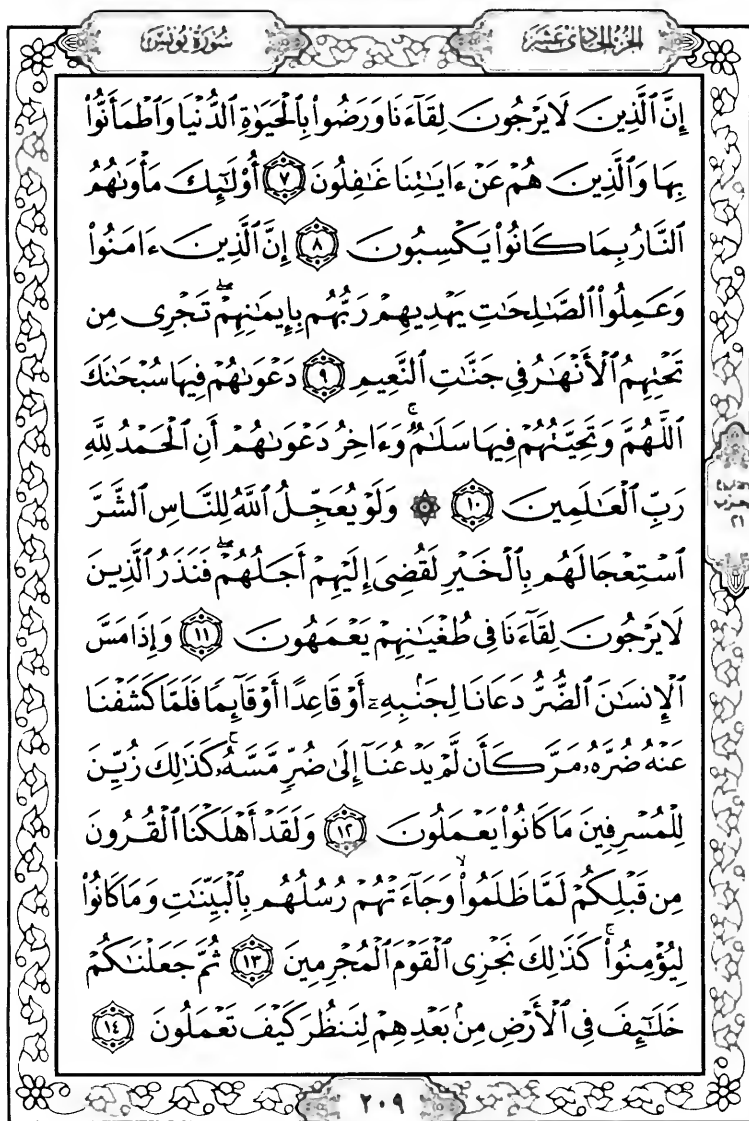 الجزء الحادي عشر
سورة يونس
إِنَّ ٱلَّذِينَ لَا يَرْجُونَ لِقَآءَنَا وَرَضُوا۟ بِٱلْحَيَوٰةِ ٱلدُّنْيَا وَٱطْمَأَنُّوا۟
بِهَا وَٱلَّذِينَ هُمْ عَنْ ءَايَـٰتِنَا غَـٰفِلُونَ ٧ أُو۟لَـٰٓئِكَ مَأْوَىٰهُمُ
ٱلنَّارُ بِمَا كَانُوا۟ يَكْسِبُونَ ٨ إِنَّ ٱلَّذِينَ ءَامَنُوا۟
وَعَمِلُوا۟ ٱلصَّـٰلِحَـٰتِ يَهْدِيهِمْ رَبُّهُم بِإِيمَـٰنِهِمْ ۖ تَجْرِى مِن
تَحْتِهِمُ ٱلْأَنْهَـٰرُ فِى جَنَّـٰتِ ٱلنَّعِيمِ ٩ دَعْوَىٰهُمْ فِيهَا سُبْحَـٰنَكَ
ٱللَّهُمَّ وَتَحِيَّتُهُمْ فِيهَا سَلَـٰمٌ ۚ وَءَاخِرُ دَعْوَىٰهُمْ أَنِ ٱلْحَمْدُ لِلَّهِ
رَبِّ ٱلْعَـٰلَمِينَ ١٠ ۞ وَلَوْ يُعَجِّلُ ٱللَّهُ لِلنَّاسِ ٱلشَّرَّ
ٱسْتِعْجَالَهُم بِٱلْخَيْرِ لَقُضِىَ إِلَيْهِمْ أَجَلُهُمْ ۖ فَنَذَرُ ٱلَّذِينَ
لَا يَرْجُونَ لِقَآءَنَا فِى طُغْيَـٰنِهِمْ يَعْمَهُونَ ١١ وَإِذَا مَسَّ
ٱلْإِنسَـٰنَ ٱلضُّرُّ دَعَانَا لِجَنۢبِهِۦٓ أَوْ قَاعِدًا أَوْ قَآئِمًا فَلَمَّا كَشَفْنَا
عَنْهُ ضُرَّهُۥ مَرَّ كَأَن لَّمْ يَدْعُنَآ إِلَىٰ ضُرٍّ مَّسَّهُۥ ۚ كَذَٰلِكَ زُيِّنَ
لِلْمُسْرِفِينَ مَا كَانُوا۟ يَعْمَلُونَ ١٢ وَلَقَدْ أَهْلَكْنَا ٱلْقُرُونَ
مِن قَبْلِكُمْ لَمَّا ظَلَمُوا۟ ۙ وَجَآءَتْهُمْ رُسُلُهُم بِٱلْبَيِّنَـٰتِ وَمَا كَانُوا۟
لِيُؤْمِنُوا۟ ۚ كَذَٰلِكَ نَجْزِى ٱلْقَوْمَ ٱلْمُجْرِمِينَ ١٣ ثُمَّ جَعَلْنَـٰكُمْ
خَلَـٰٓئِفَ فِى ٱلْأَرْضِ مِنۢ بَعْدِهِمْ لِنَنظُرَ كَيْفَ تَعْمَلُونَ ١٤
٢١
٢٠٩